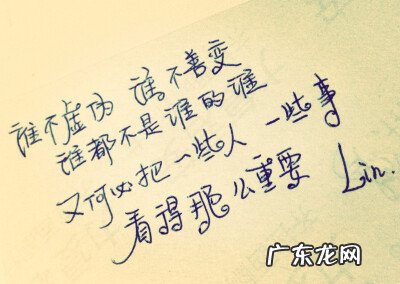 谁不虚伪 谁不善变
谁都不是谁的谁
又何必把一些人 一些事
看得那么重要 Lin.
广东龙网